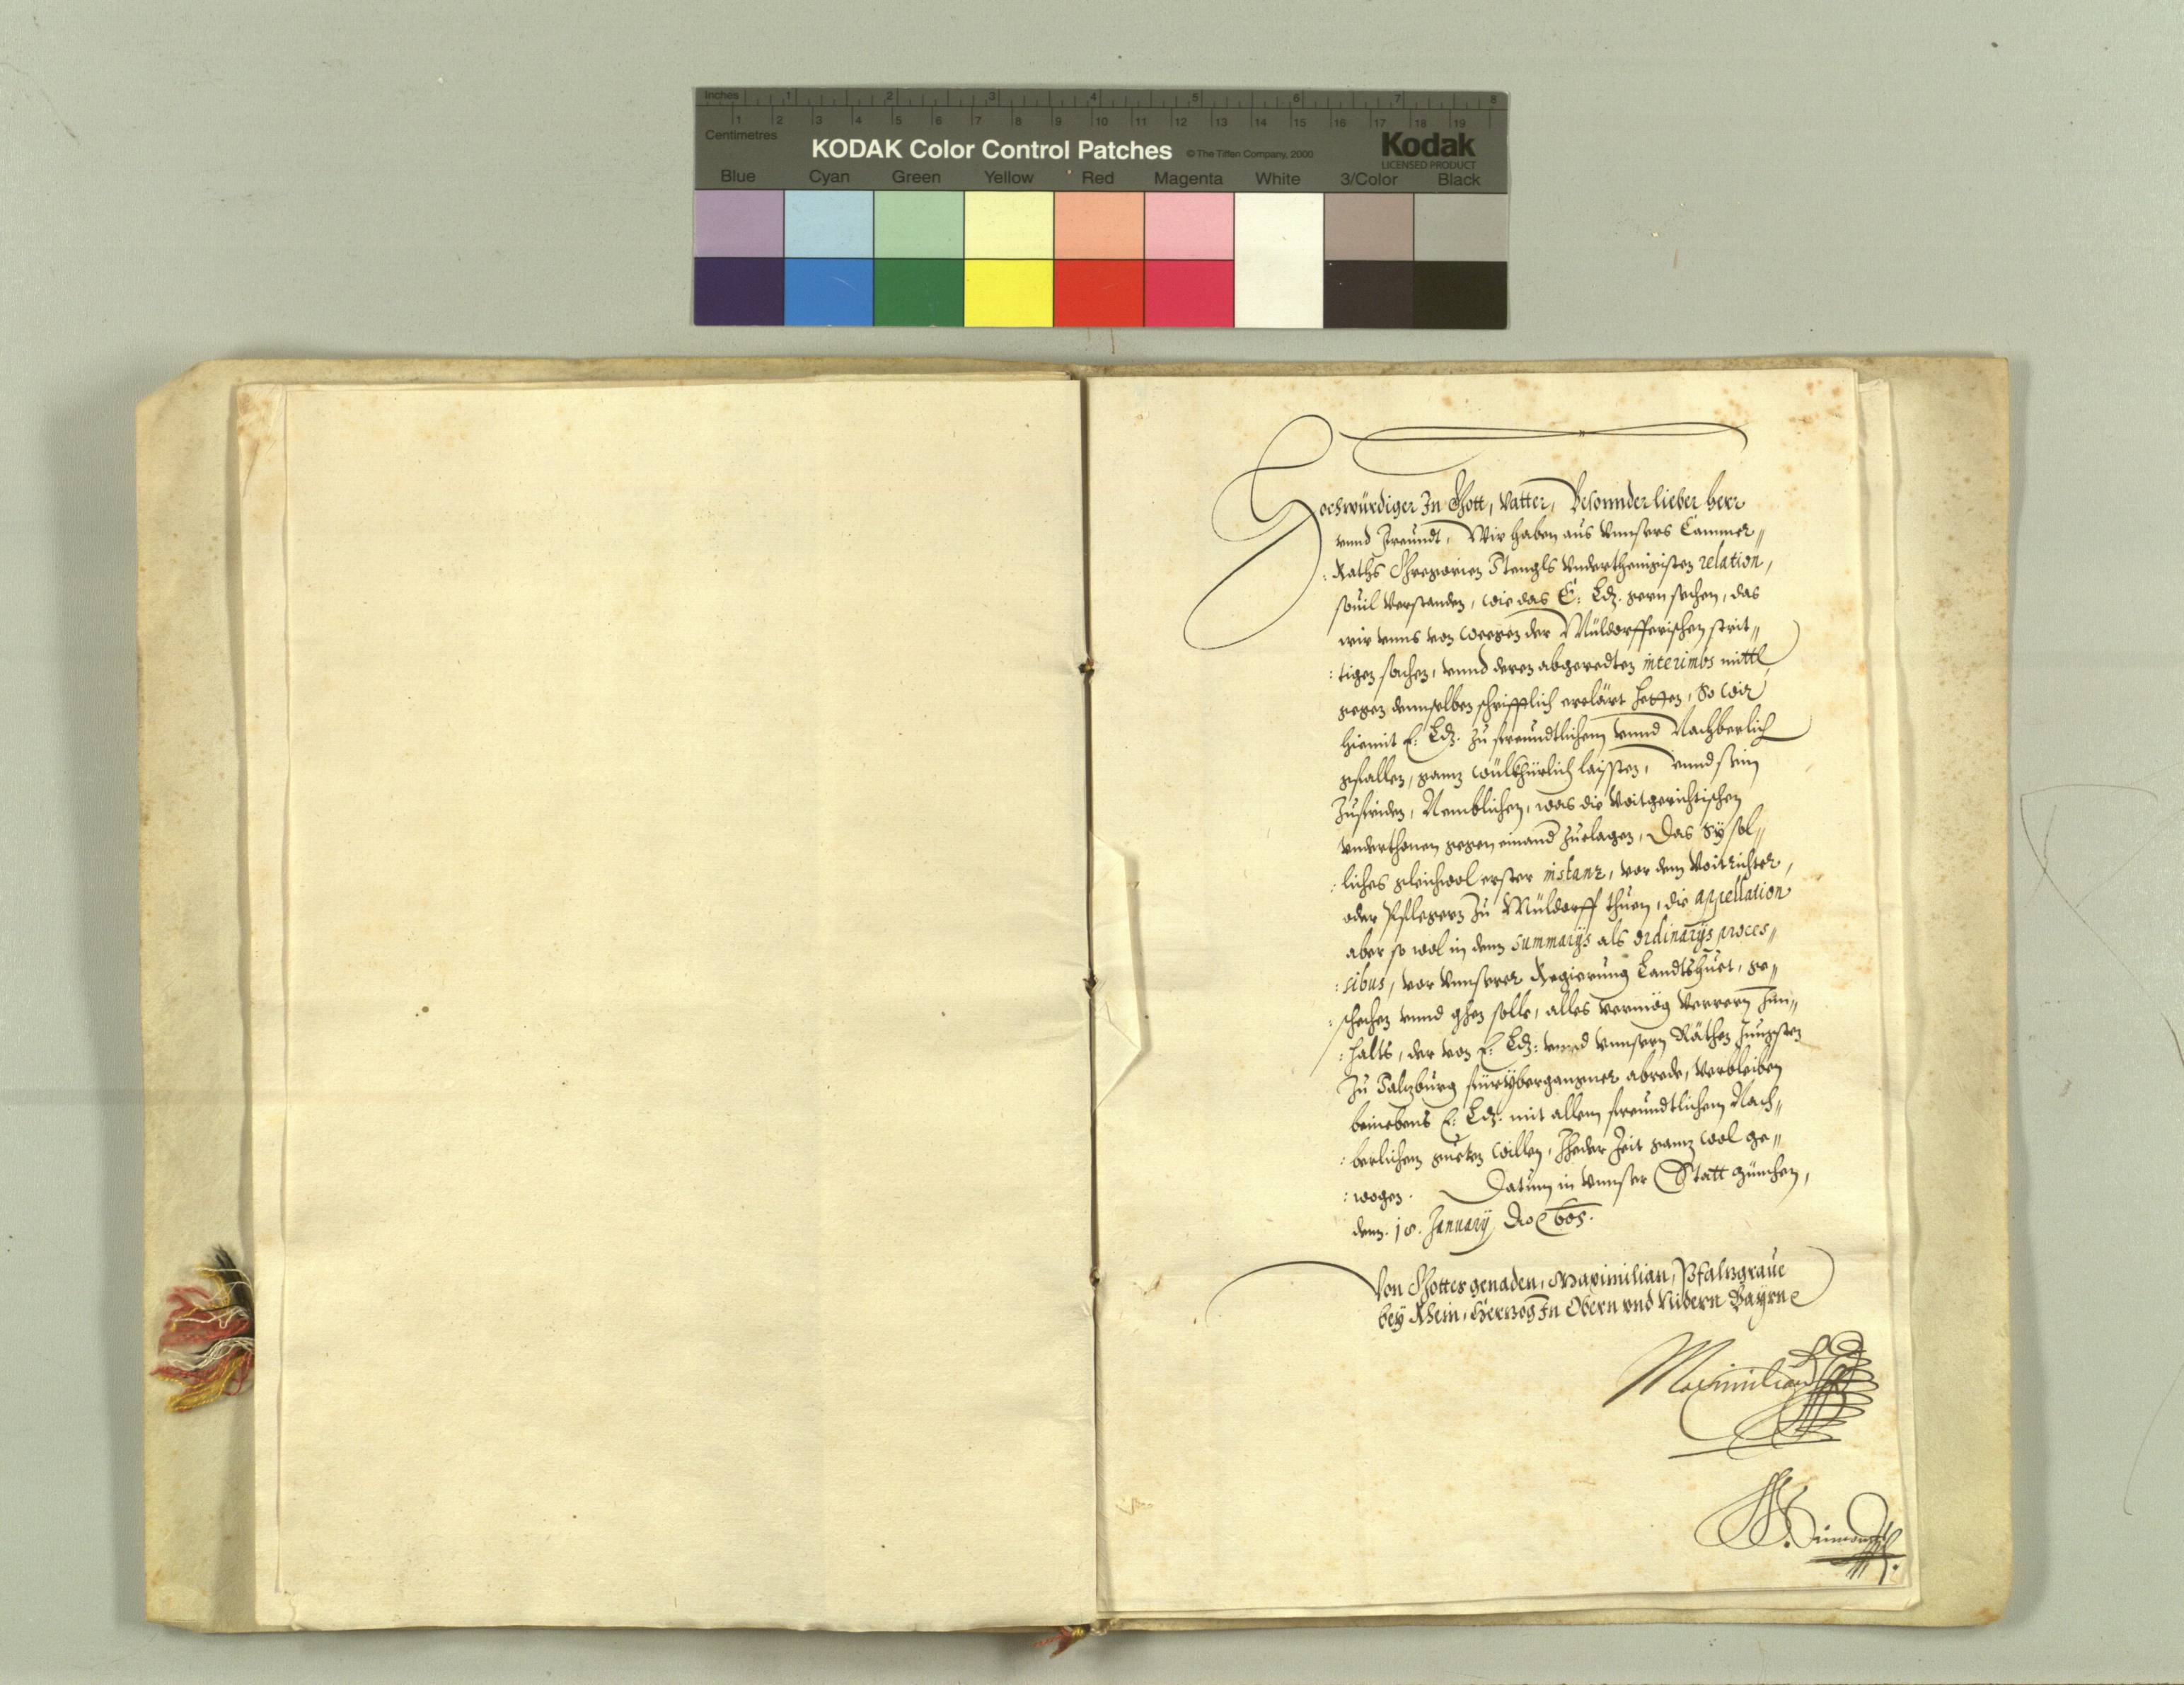 Inches 1 2 3 4 5 6 7 8
Centimetres 1 2 3 4 5 6 7 8 9 10 11 12 13 14 15 16 17 18 19
KODAK Color Control Patches © The Tiffen Company, 2000 Kodak
LICENSED PRODUCT
Blue Cyan Green Yellow Red Magenta White 3/Color Black
Hochwürdiger In Gott, Vatter, Besonnder lieber herr
vnnd Freundt, Wir haben aus vnnsers Cammer„
:Raths Gregorien Stengls vnderthenigisten relation,
souil verstanden, wie das E: Ld. gern sechen, das
wir vnns von weegen der Müldorfferischen strit„
:tigen sachen, vnnd deren abgeredten interimbs mittl,
gegen demselben schrifftlich erclärt hetten, So wir
hiemit E: Ld. zu freundtlichem vnnd Nachberlich
gfallen, ganz willkhürlich laissten, vnnd sein
zufriden, Nemblichen, was die Voitgerichtischen
vnderthonen gegen einand zuclagen, Das sy sol„
:liches gleichwol erster instanz, vor dem Voitrichter,
oder Pflegern zu Müldorff thuen, die appellation
aber so wol in denn summarijs als ordinarijs proces„
:sibus, vor vnnserer Regierung Landtshuet, ge„
:schechen vnnd ghen solle, alles vermög verrern Inn„
:halts, der von E: Ld: vnnd vnnsern Räthen Jungsten
zu Salzburg fürybergangner abrede, Verbleiben
beinebens E: Ld. mit allem freundtlichem Nach„
:berlichem gueten willen, Jheder Zeit ganz wol ge„
:wogen. Datum in vnnser Statt München,
denn. 18. January Ao 605.
Von Gottes genaden, Maximilian, Pfalzgraue
bey Rhein, Herzog In Obern vnd Nidern Bayrn
Maximilian